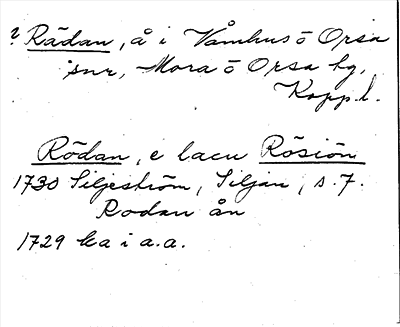 ? Rädan, å i Våmhus o Orsa
snr, Mora o Orsa hg,
Kopp. l.
Rödan, e lacu Rösiön
1730 Siljeström, Siljan, s. 7.
Rodan ån
1729 ka i a.a.